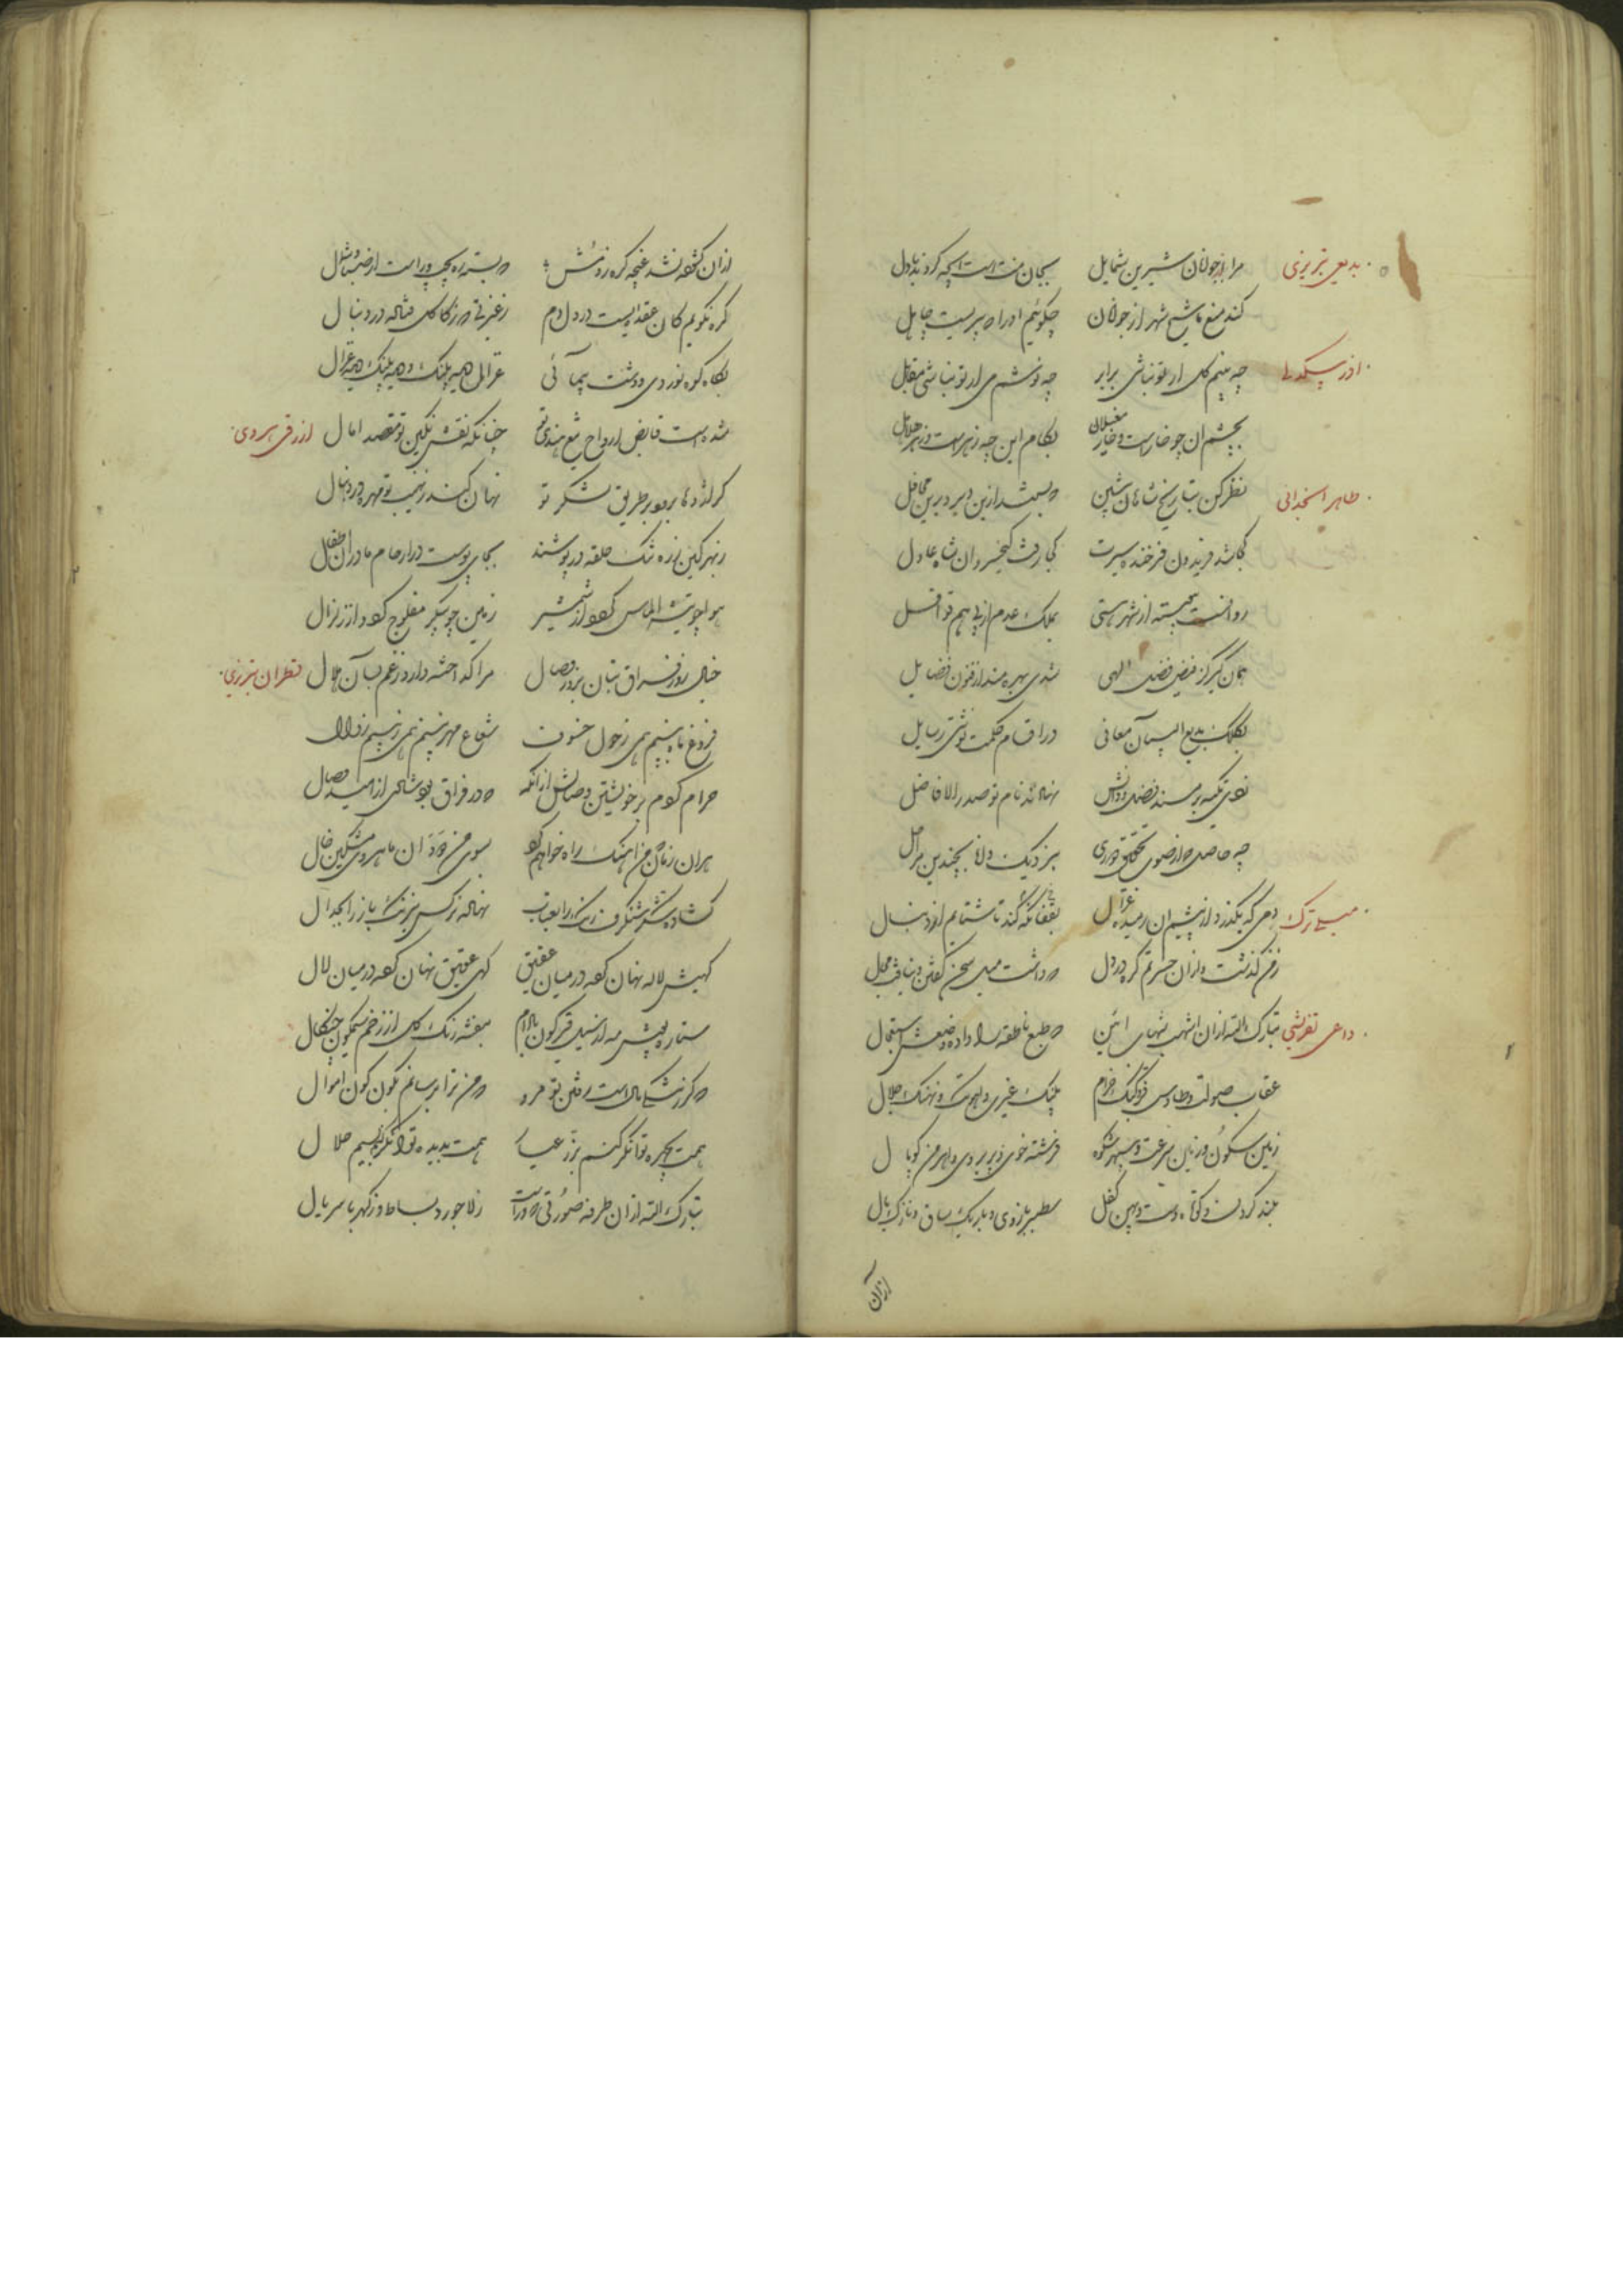 بدیعی تبریزی مرا از جوانان شیرین شمایل بجان منت است آنچه کردند با دل
کند منع ما شیخ شهر از جوانان چکوئیم او را که پیریست جاهل
اذر بیکدلی چه بینم کل ار تو نباشی برابر چه نوشم می ار تو نباشی مقابل
بچشم ان چو خارست و خار مغیلان بکام این چه زهرست و زهر هلاهل
طاهر نظر کن بتاریخ شاهان پیشین که بس شد ازین دیر دیرین محافل
کجا شد فریدون فرخنده سیرت کجا رفت کیخسرو ان شاه عادل
روانست پیوسته از شهر هستی بملک عدم از پی هم قوافل
همان کیر کز فیض فضل الهی شدی بهره مند از فنون فضایل
بکلک بدیع البیان معانی در اقسام حکمت نوشتی رسایل
زدی تکیه بر مسند فضل و دانش نهادند نام تو صدر الافاضل
چه حاصل که از صوب تحقیق دوری بنزدیک دانا بچندین مراحل
میلی ترک دمی که بگذرد از پیشم ان رمیده غزال بقفا نگه کند تا شتابم از دنبال
ز من گذشت و از ان حسرتم گره در دل که داشت میل سخن گفتن و نیافت مجال
داعی تفرشی تبارک الله از ان اشهب شهاب ائین که طبع ناطقه را داده وضعش استعجال
عقاب صولت و طاوس فر و کبک خرام پلنک غیرت و نهنک جلال
زمین سکون و زمان سرعت و سپهر شکوه فرشته خوی و پری روی و اهرمن کوپال
بلند کردن و کوتاه دست و پهن کفل سطبر بازوی و باریک ساق و نازک یال
از ان
از ان کشفته نشد غنچه کره ز دمش که بسته ره بچپ و راست از صبا و شمال
کره نکویم کان عقده ایست در دل و دم
بگاه کوه نوردی و دشت پیمائی غزال پلنک و پلنک غزال
شده است قابض ارواح تیغ هندی تو چنانکه نقش نکین تو مقصد امال ازرقی هروی
کر اژدها برود بر طریق لشکر تو نهان کند ز نهیب تو مهره در دنبال
ز بهر کین زره تنک حلقه در پوشند بجای پوست در ارحام مادران اطفال
هوا چو تیشه الماس کردد از شمشیر زمین چو پیکر مفلوج کردد از زلزال
خیال روز فراق بتان بروز وصال مرا که اخته دارد ز غم بسان هلال قطران تبریزی
فروغ ماه نبینم همی ز حول خسوف شعاع مهر نبینم همی ز بیم زوال
حرام کردم بر خویشتن وصالش از انکه که در فراق بود شادی از امید وصال
بر ان زمان که من اهنک راه خواهم کرد بسوی من ان ماهروی مشکین خال
کشاده شکر شنکرف رنک را بعتاب نهاده نرکس نیرنک باز را بجدال
کهیش لاله نهان کرده در میان عقیق کهی عقیق نهان کرده در میان لال
ستاره مه از نیل بنفشه رنک کل از زخم سیمکون چنکال
که کر ز بهر مالست رفتن تو مرو که من ترا برسانم بکون کون اموال
همت بچهره توانکر کنم بزر عیار همت بدیده توانکر کنم بسیم حلال
تبارک الله از ان طرفه صورتی که وراست ز لاجورد بساط و ز کهربا سر یال